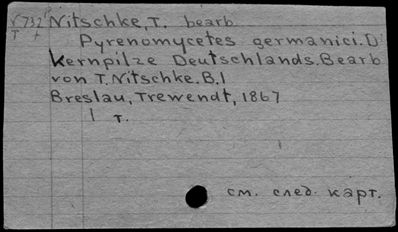 V732 Nitschke, T. bearb.
T +
Pyrenomycetes germanici. D
Kernpilze Deutschlands. Bearb
von T. Nitschke. B. I
Breslau, Trewendt, 1867
1 т.
см. след. карт.